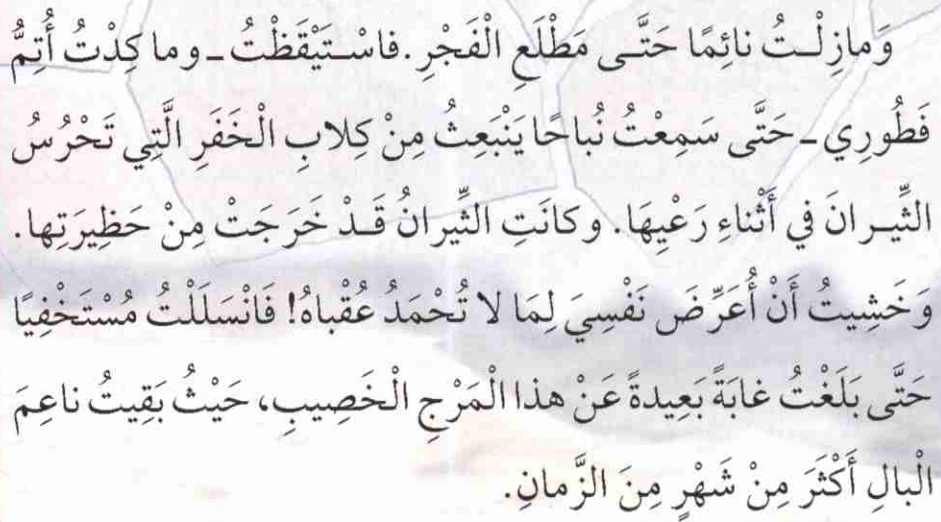 وَمازِلْتُ نائِمًا حَتَّى مَطْلَعِ الْفَجْرِ. فاسْتَيْقَظْتُ ـ وما كِدْتُ أُتِمُّ
فَطُورِي ـ حَتَّى سَمِعْتُ نُباحًا يَنْبَعِثُ مِنْ كِلابِ الْخَفَرِ الَّتِي تَحْرُسُ
الثِّيرانَ في أَثْناءِ رَعْيِهَا. وكانَتِ الثِّيرانُ قَدْ خَرَجَتْ مِنْ حَظِيرَتِها.
وَخَشِيتُ أَنْ أُعَرِّضَ نَفْسِيَ لِمَا لا تُحْمَدُ عُقْباهُ! فَانْسَلَلْتُ مُسْتَخْفِيًا
حَتَّى بَلَغْتُ غابَةً بَعِيدةً عَنْ هذا الْمَرْجِ الْخَصِيبِ، حَيْثُ بَقِيتُ ناعِمَ
الْبالِ أَكْثَرَ مِنْ شَهْرٍ مِنَ الزَّمانِ.